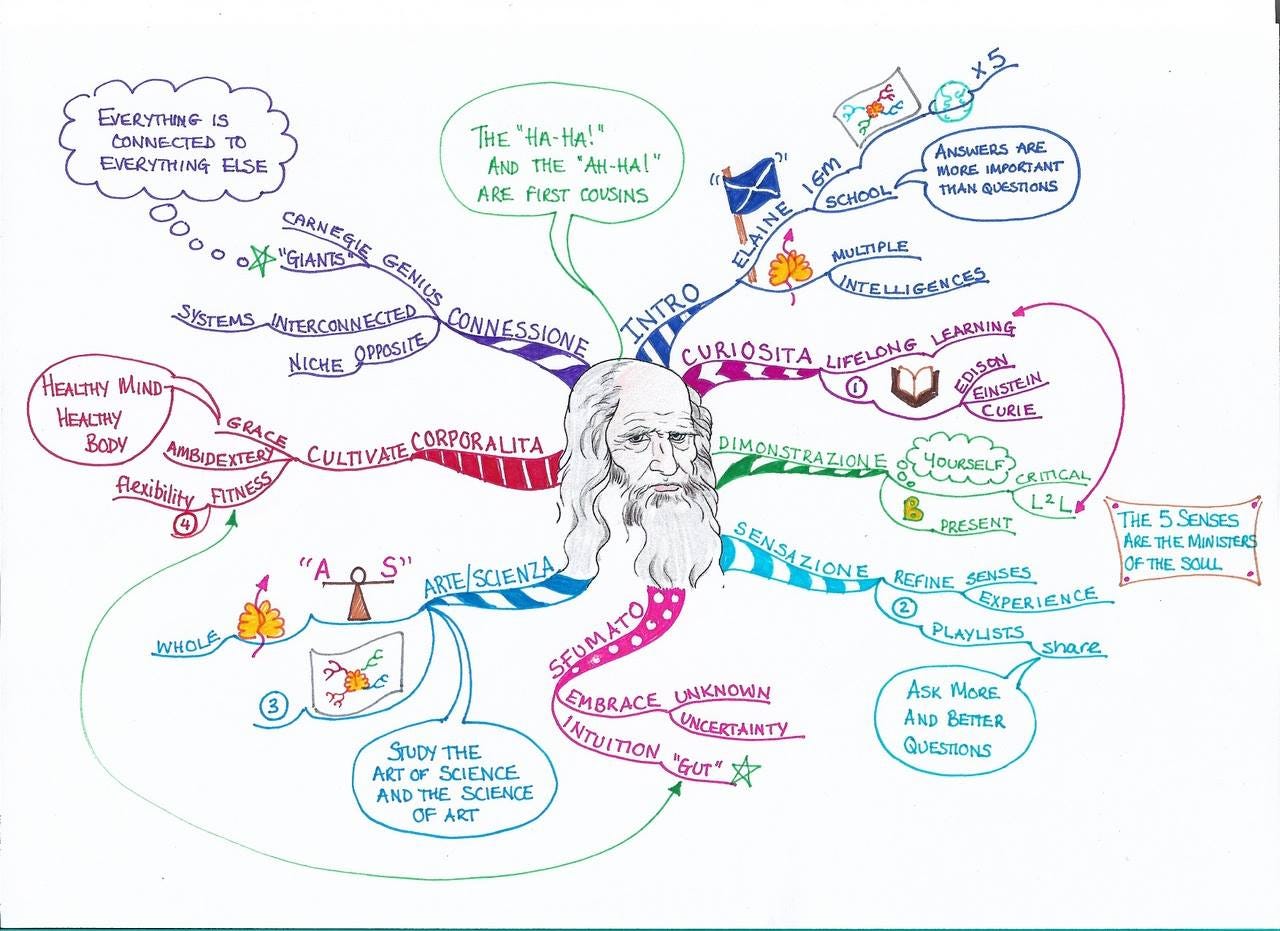 EVERYTHING IS
CONNECTED TO
EVERYTHING ELSE
THE "HA-HA!"
AND THE "AH-HA!"
ARE FIRST COUSINS
INTRO
ELAINE
" "
IGM
x 5
SCHOOL
ANSWERS ARE
MORE IMPORTANT
THAN QUESTIONS
MULTIPLE
INTELLIGENCES
CURIOSITA
LIFELONG
LEARNING
1
EDISON
EINSTEIN
CURIE
DIMONSTRAZIONE
YOURSELF
CRITICAL
L2L
B
PRESENT
THE 5 SENSES
ARE THE MINISTERS
OF THE SOUL
SENSAZIONE
REFINE SENSES
EXPERIENCE
2
PLAYLISTS
share
ASK MORE
AND BETTER
QUESTIONS
SFUMATO
EMBRACE UNKNOWN
UNCERTAINTY
INTUITION "GUT"
ARTE/SCIENZA
"A S"
WHOLE
3
STUDY THE
ART OF SCIENCE
AND THE SCIENCE
OF ART
CORPORALITA
CULTIVATE
GRACE
AMBIDEXTERY
FITNESS
flexibility
4
HEALTHY MIND
HEALTHY
BODY
CONNESSIONE
GENIUS
CARNEGIE
"GIANTS"
INTERCONNECTED
SYSTEMS
OPPOSITE
NICHE